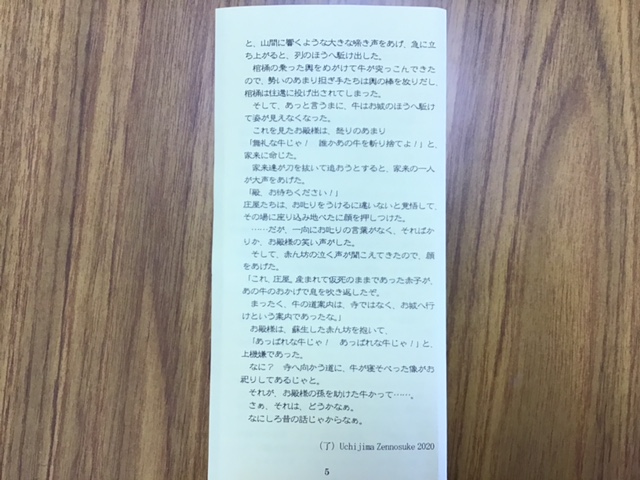 と、山間に響くような大きな啼き声をあげ、急に立
ち上がると、列のほうへ駈け出した。
棺桶の乗った輿をめがけて牛が突っこんできた
ので、勢いのあまり担ぎ手たちは輿の棒を放りだし、
棺桶は往還に投げ出されてしまった。
そして、あっと言うまに、牛はお城のほうへ駈け
て姿が見えなくなった。
これを見たお殿様は、怒りのあまり
「無礼な牛じゃ！　誰かあの牛を斬り捨てよ！」と、
家来に命じた。
家来達が刀を抜いて追おうとすると、家来の一人
が大声をあげた。
「殿、お待ちください！」
庄屋たちは、お叱りをうけるに違いないと覚悟して、
その場に座り込み地べたに顔を押しつけた。
……だが、一向にお叱りの言葉がなく、そればか
りか、お殿様の笑い声がした。
そして、赤ん坊の泣く声が聞こえてきたので、顔
をあげた。
「これ、庄屋。産まれて仮死のままであった赤子が、
あの牛のおかげで息を吹き返したぞ。
まったく、牛の道案内は、寺ではなく、お城へ行
けという案内であったな。」
お殿様は、蘇生した赤ん坊を抱いて、
「あっぱれな牛じゃ！　あっぱれな牛じゃ！」と、
上機嫌であった。
なに？　寺へ向かう道に、牛が寝そべった像がお
祀りしてあるじゃと。
それが、お殿様の孫を助けた牛かって……。
さぁ、それは、どうかなぁ。
なにしろ昔の話じゃからなぁ。
（了）Uchijima Zennosuke 2020
5